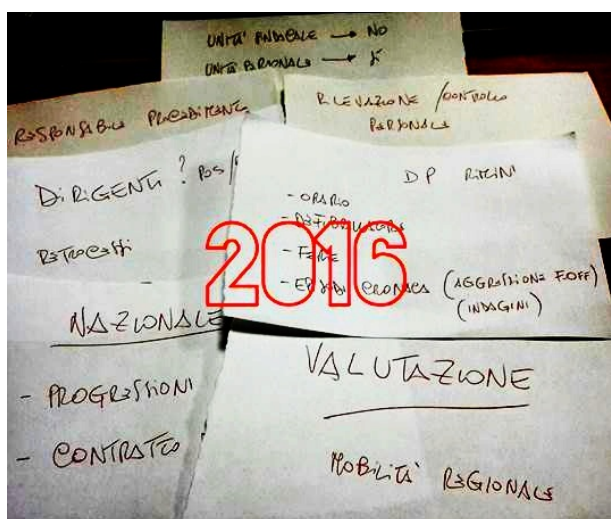 UNITA' SINDACALE → NO
UNITA' PERSONALE → SÌ
RESPONSABILE PROCEDIMENTO
RILEVAZIONE / CONTROLLO
PERSONALE
DIRIGENTI ? POS/
RETROCESSI
DP RIMINI
- ORARIO
- DEFIBRILLATORI
- FERIE
- EPISODI CRONACA (AGGRESSIONE F.OFF)
(INDAGINI)
2016
NAZIONALE
- PROGRESSIONI
- CONTRATTO
VALUTAZIONE
MOBILITA' REGIONALE